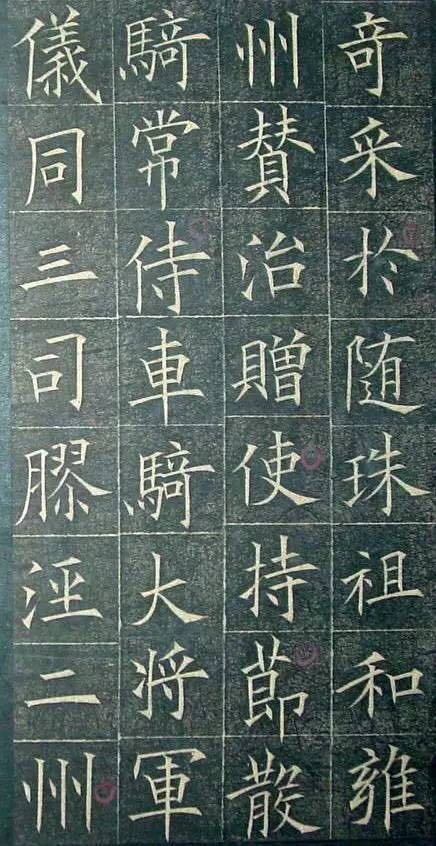 奇采於随珠祖和雍
州賛治贈使持節散
騎常侍車騎大將軍
儀同三司膠涇二州